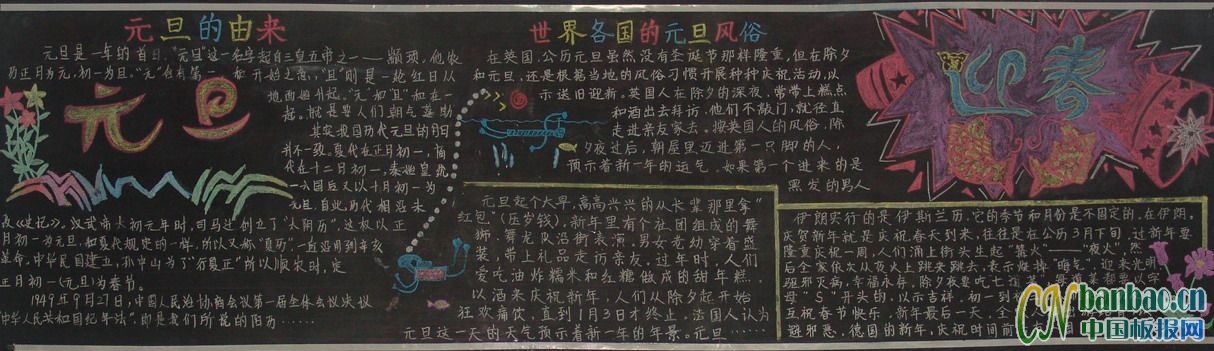 元旦的由来
元旦是一年的首日."元旦"这一名字起自三皇五帝之一——颛顼,他农
历正月为元,初一为旦."元"含有第一和开始之意,"旦"则是一轮红日从
地面 升起."元"和"旦"和在一
就是要人们朝气蓬勃
元旦
其实我国历代元旦的月日
并不一致.夏代在正月初一,商
代在十二月初一,秦始皇统
一六国后又以十月初一为
元旦,自此,历代相沿未
改《史记》.汉武帝太初元年时,司马迁创立了"太阴历",这 以正
月初一为元旦,和夏代规定的一样,所以又称"夏历",一直沿用到辛亥
革命.中华民国建立,孙中山为了"行夏正"所以顺农时,定
正月初一(元旦)为春节.
1949年9月27日,中国人民政协商会议第一届全体会议决议
"中华人民共和国纪年法",即是我们所说的阳历……
世界各国的元旦风俗
在英国,公历元旦虽然没有圣诞节那样隆重,但在除夕
和元旦,还是根据当地的风俗习惯开展种种庆祝活动,以
示送旧迎新。英国人在除夕的深夜,常带上糕点
和酒出去拜访,他们不敲门,就径直
走进亲友家去。按英国人的风俗,除
夕夜过后,朝屋里迈进第一只脚的人,
预示着新一年的运气。如果第一个进来的是
黑发的男人
元旦起个大早,高高兴兴的从长辈那里拿"
红包"(压岁钱),新年里有个社团组成的舞
狮、舞龙队沿街表演,男女老幼穿着盛
装,带上礼品走访亲友。过年时,人们
爱吃油炸糯米和红糖做成的甜年糕.
以酒来庆祝新年,人们从除夕起开始
狂欢痛饮,直到1月3日才终止。法国人认为
元旦这一天的天气预示着新一年的年景。元旦……
迎春
伊朗实行的是伊斯兰历,它的季节和月份是不固定的,在伊朗,
庆贺新年就是庆祝春天到来,往往是在公历3月下旬,过新年要
隆重庆祝一周,人们涌上街头生起"篝火"——"夜火",然
后全家依次从夜火上跳来跳去,表示烧掉"晦气",迎来光明,
驱邪灭病,幸福永存,除夕夜要吃七道
母"S"开头的,以示吉祥.初一到
互祝春节快乐,新年最后一天,全
避邪恶。德国的新年,庆祝时间前
CN banbao.cn
中国板报网